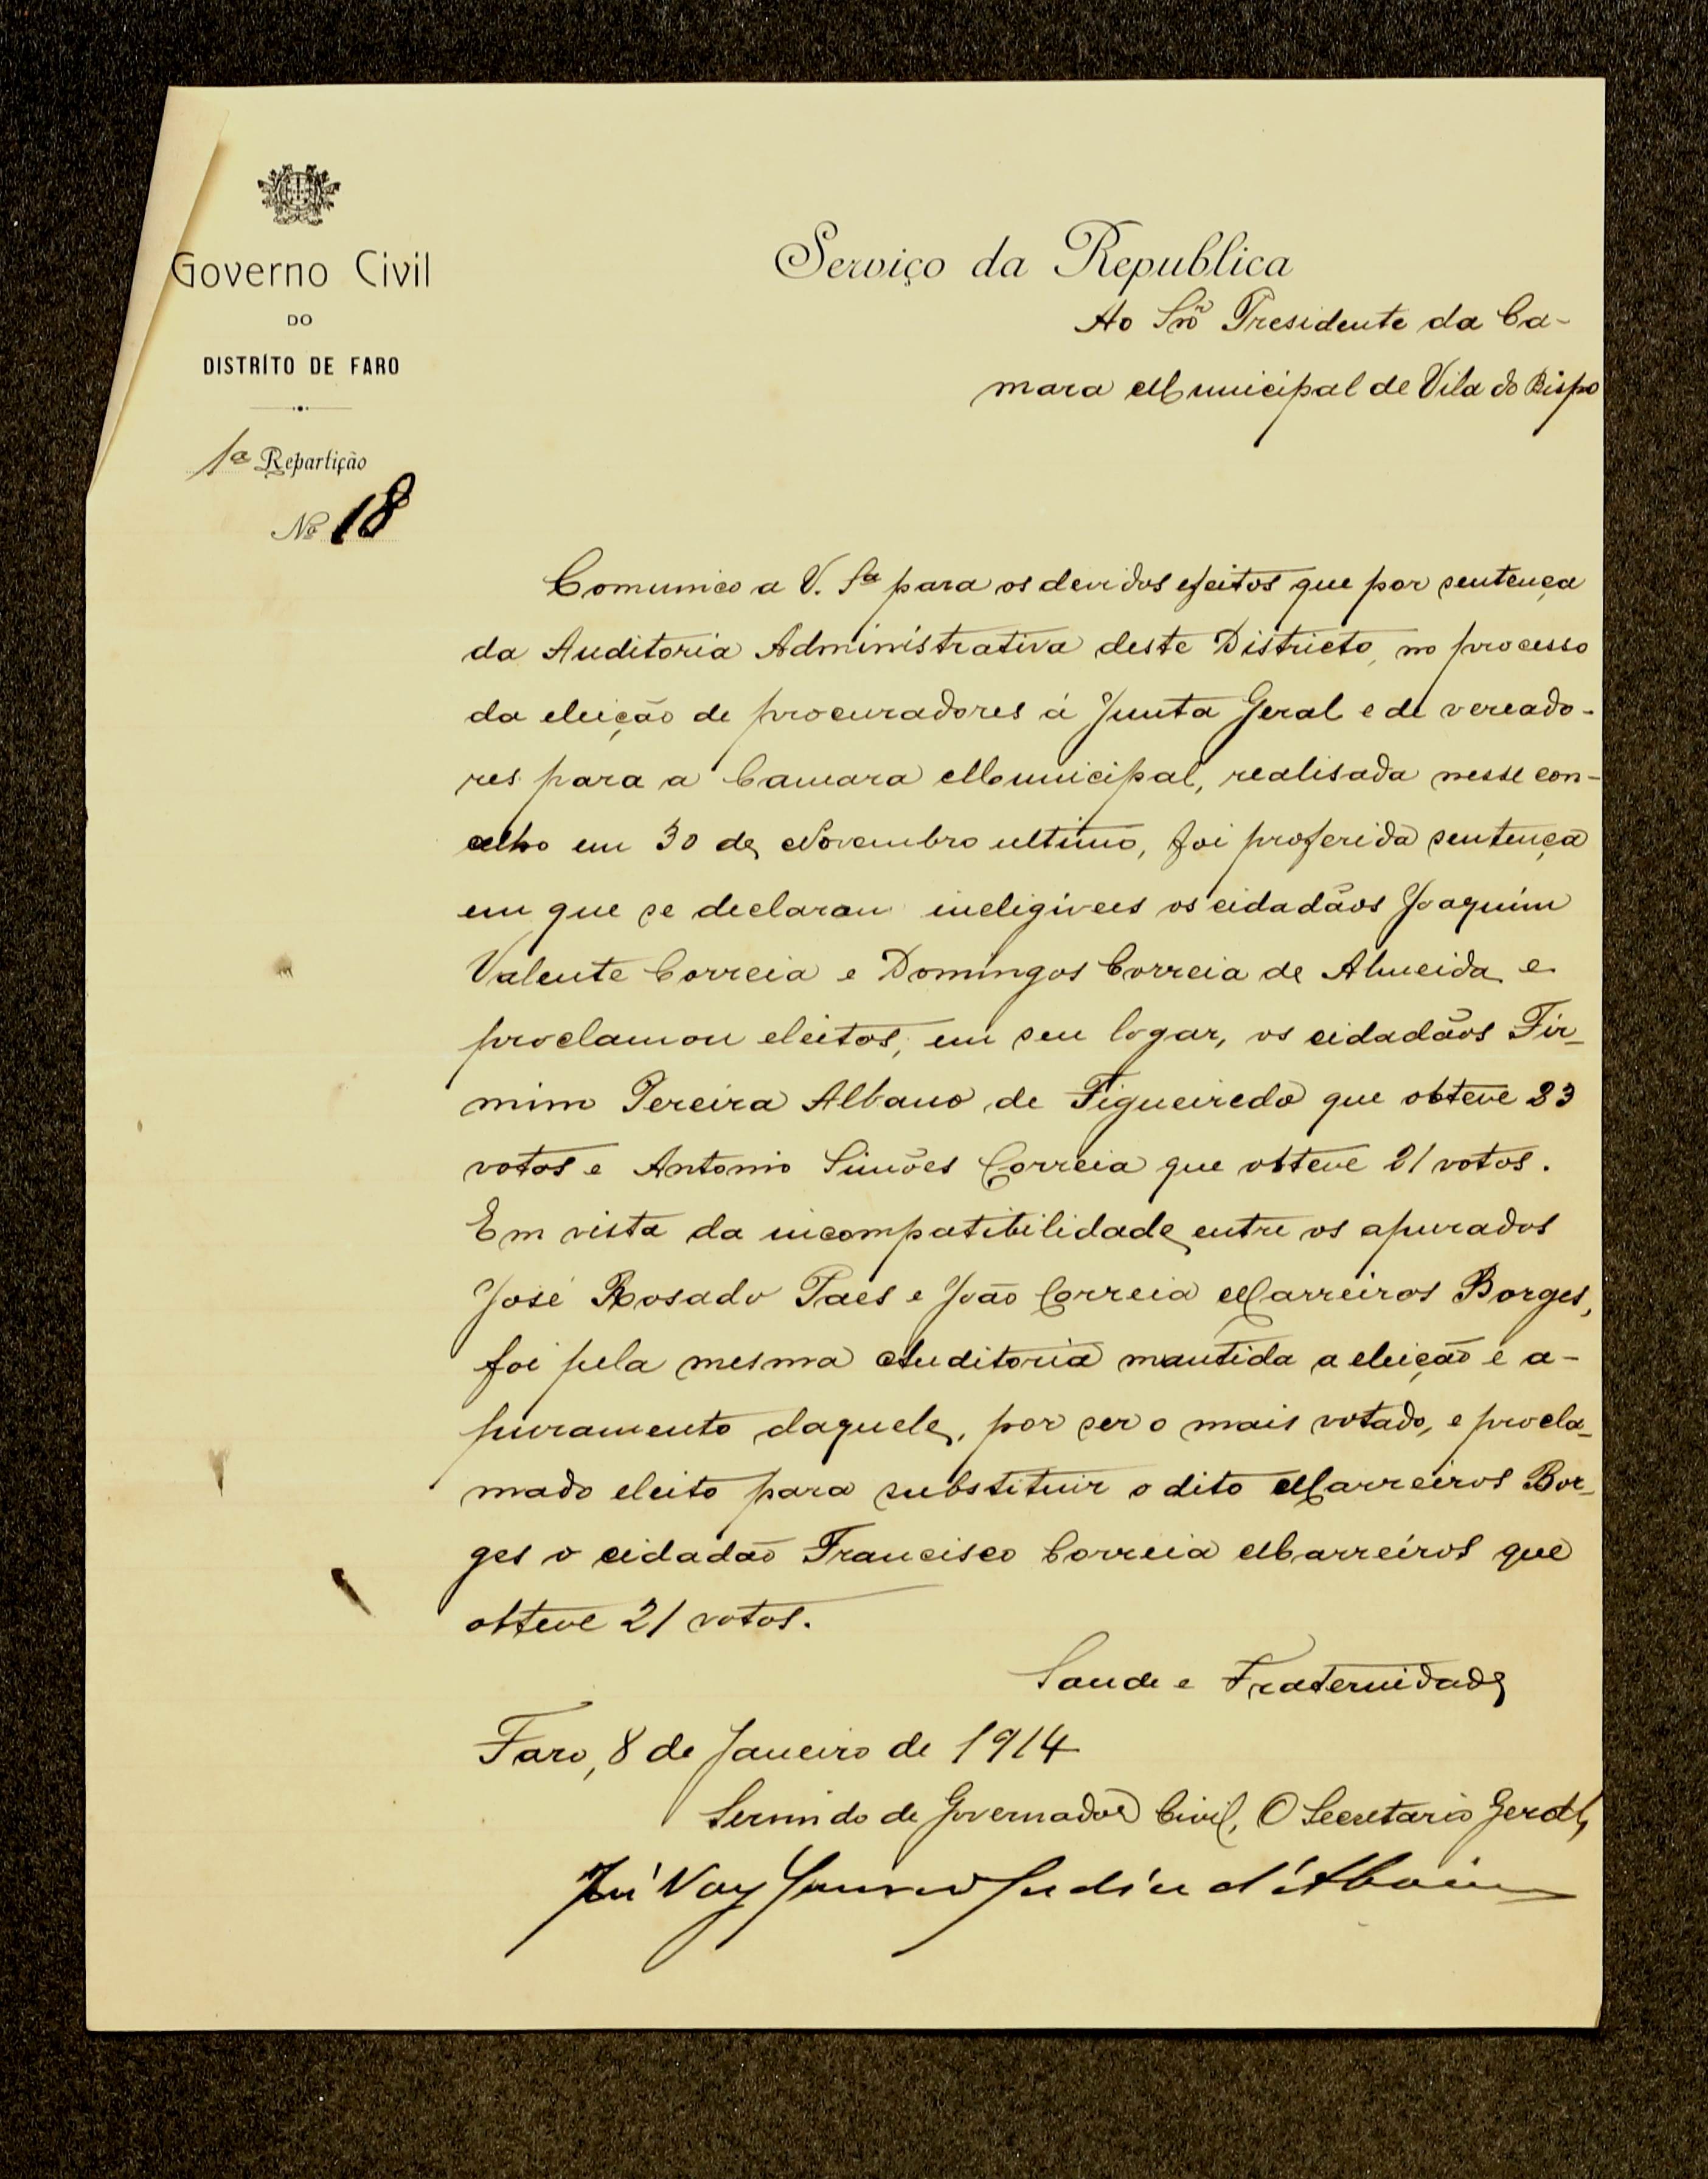 Governo Civil
DO
DISTRÍTO DE FARO
1ª Repartição
Nº 18
Serviço da Republica
Ao Snr Presidente da Ca-
mara Municipal de Vila do Bispo
Comunico a V. Sª para os devidos efeitos que por sentença
da Auditoria Administrativa deste Districto, no processo
da eleição de procuradores á Junta Geral e de vereado-
res para a Camara Municipal, realisada nesse con-
celho em 30 de Novembro ultimo, foi proferida sentença
em que se declarou ineligiveis os cidadãos Joaquim
Valente Correia e Domingos Correia de Almeida e
proclamou eleitos, em seu logar, os cidadãos Fir-
mino Pereira Albano de Figueiredo que obteve 23
votos e Antonio Simões Correia que obteve 21 votos.
Em vista da incompatibilidade entre os apurados
José Rosado Paes e João Correia Marreiros Borges,
foi pela mesma Auditoria mantida a eleição e a-
puramento daquele, por ser o mais votado, e procla-
mado eleito para substituir o dito Marreiros Bor-
ges o cidadão Francisco Correia Marreiros que
obteve 21 votos.
Saude e Fraternidade
Faro, 8 de Janeiro de 1914
Servindo de Governador Civil, O Secretario Geral,
José Vaz